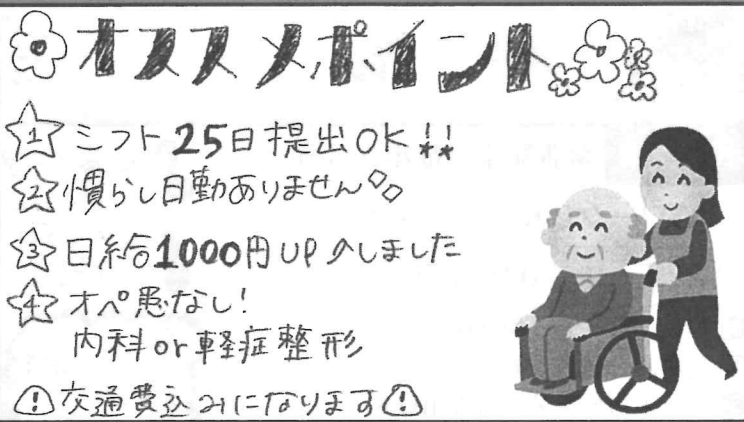 オススメポイント
1 シフト25日提出OK!!
2 慣らし日勤ありません
3 日給1000円UPしました
4 オペ患なし!
内科or軽症整形
交通費込みになります